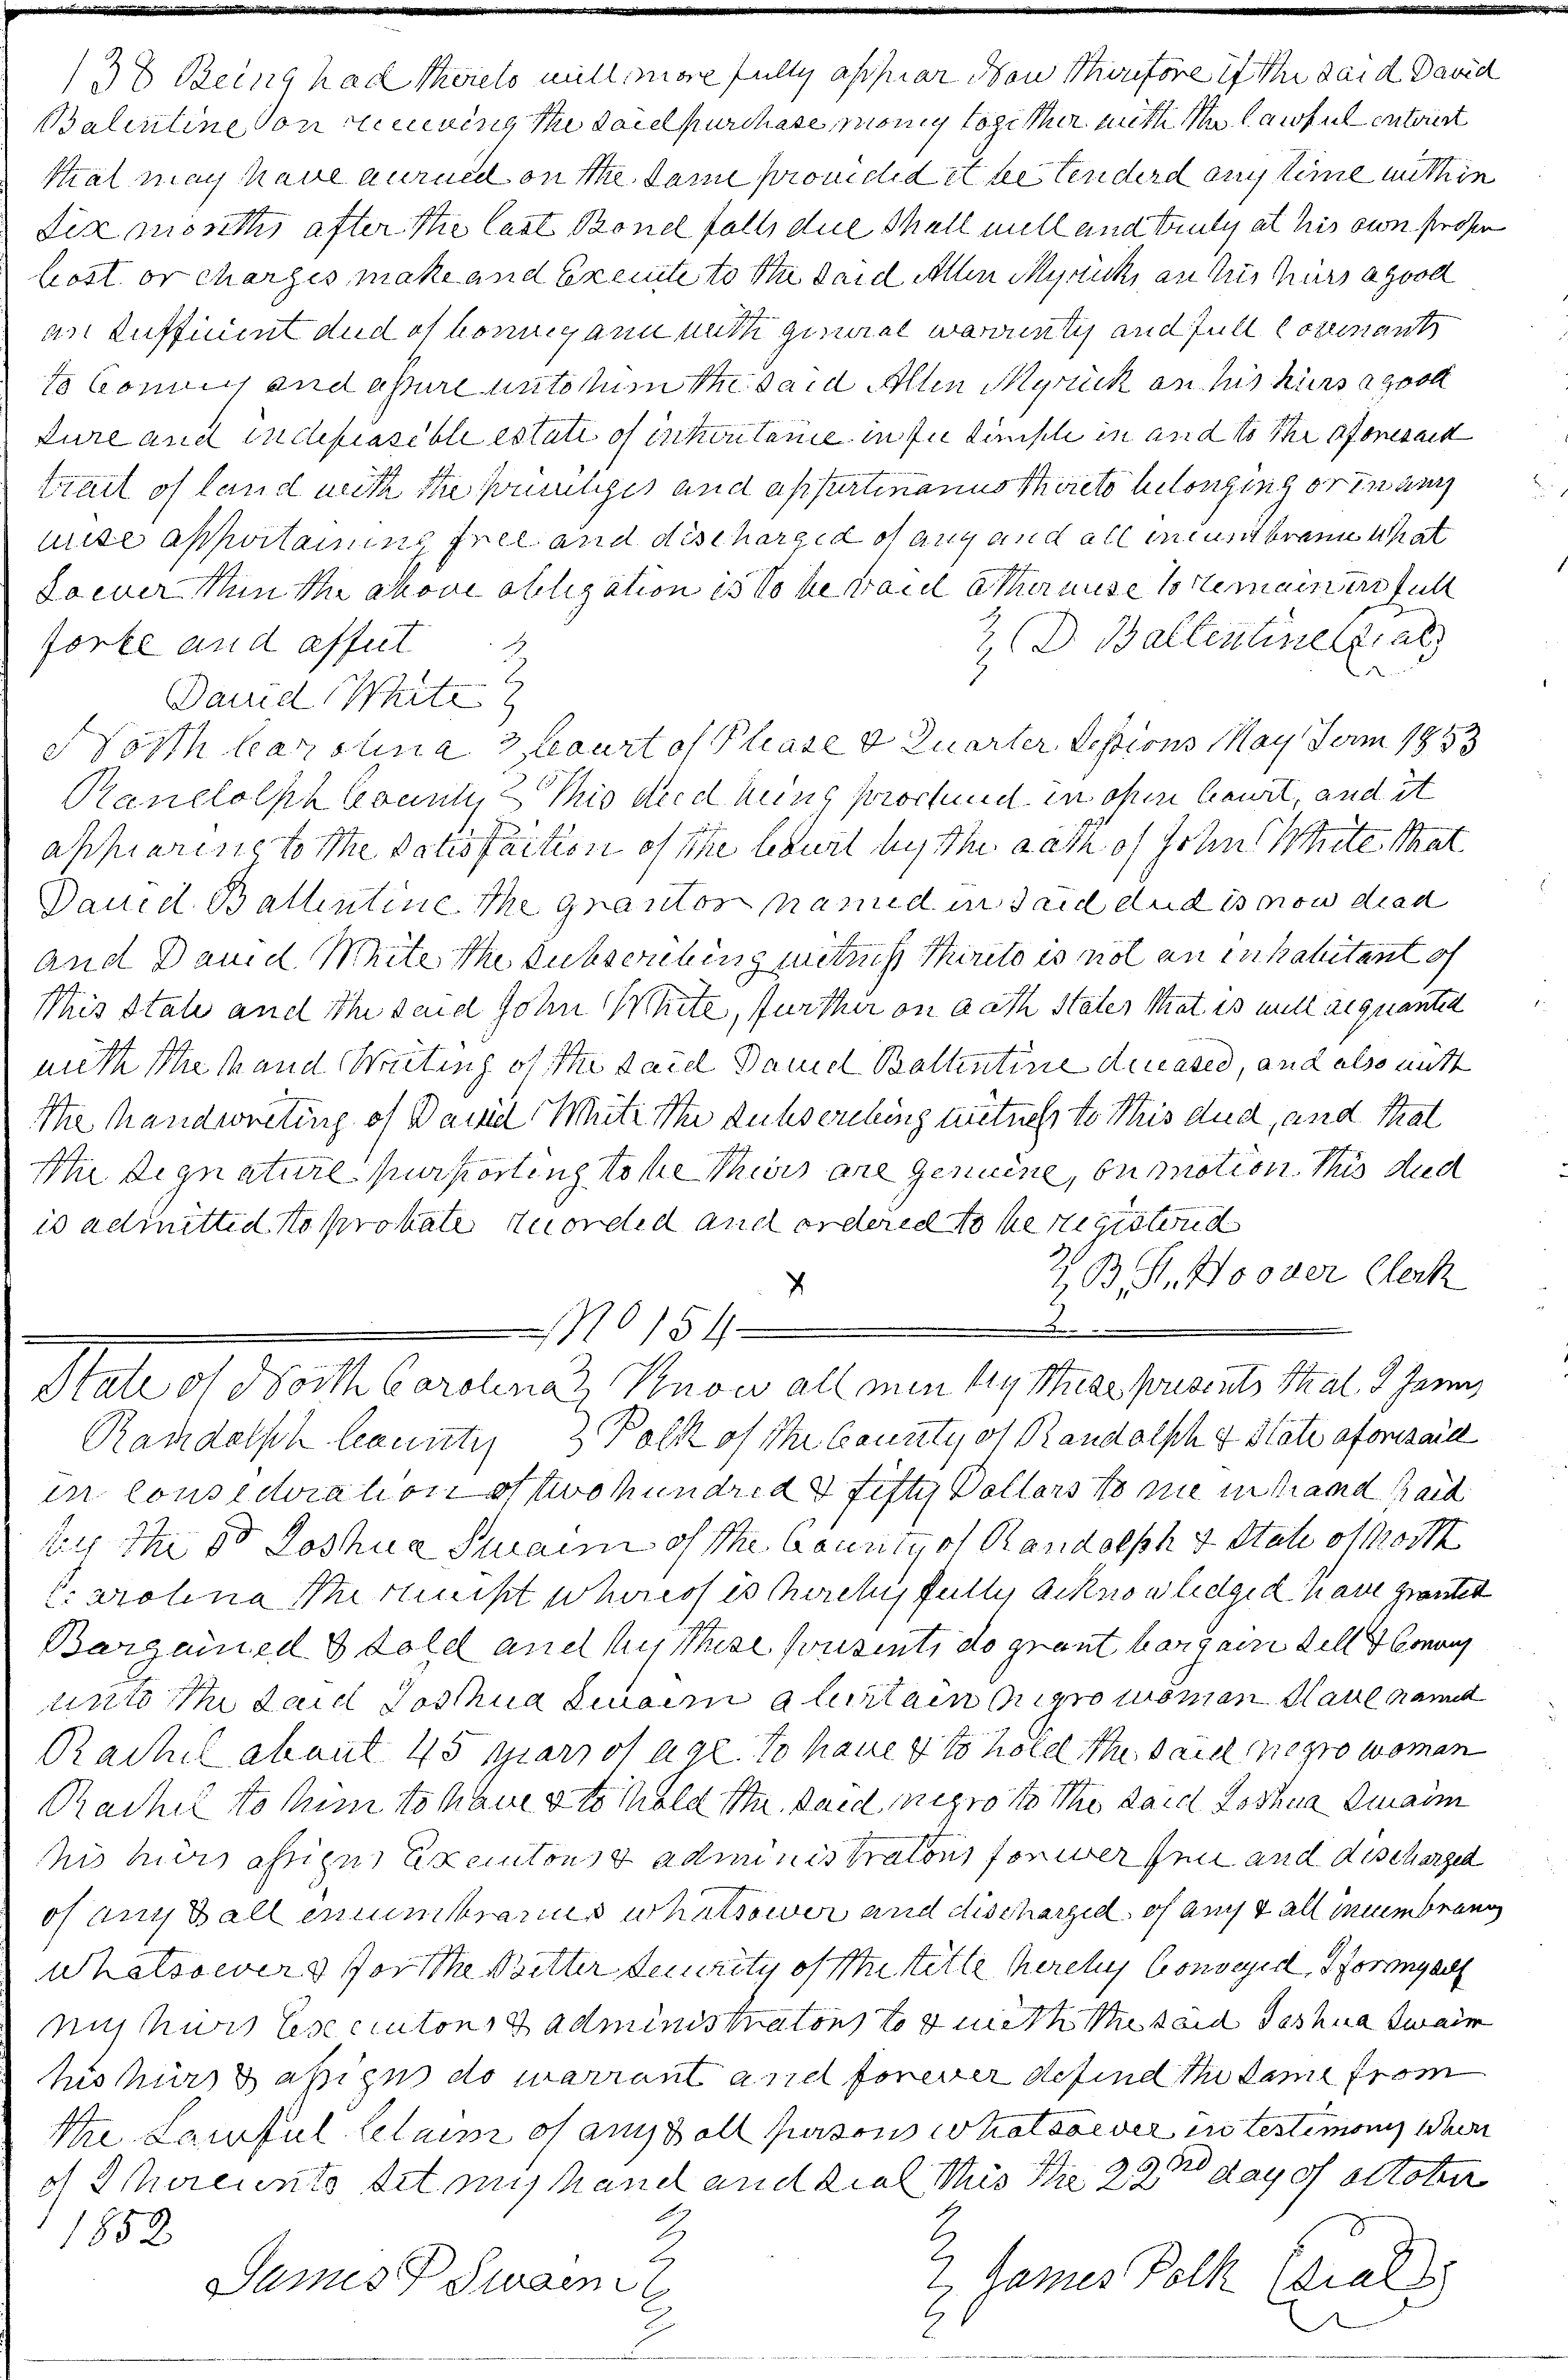 138 Being had thereto will more fully appear Now Therefore if the said David
Balentine on receiving the said purchase money together with the lawful interest
that may have accrued on the same provided it be tenderd any time within
six months after the last Bond falls due shall well and truly at his own proper
Cost or charges make and Execute to the said Allen Myricks an his heirs a good
an sufficient deed of Conveyance with general warrenty and full Covenants
to Convey and assure unto him the said Allen Myrick an his hiers a good
sure and indefeasible estate of inheritance in fee simple in and to the aforesaid
tract of land with the priviliges and appurtenances thereto belonging or in any
wise appertaining free and discharged of any and all incumbrance What
Soever then the above obligation is to be void otherwise to remain in full
forke and affect
D Ballentine (seal)
David White
North Carolina Court of Please & Quarter Sessions May Term 1853
Randolph County This deed being produced in open Court, and it
appearing to the satisfaction of the Court by the oath of John White that
David Ballentine the grantor named in said deed is now dead
and David White the subscribing witness thereto is not an inhabitant of
this state and the said John White, further on oath states that is well acquanted
with the hand Writing of the said David Ballentine deceased, and also with
the handwriting of David White the subscribing witness to this deed, and that
the signature purporting to be theirs are genuine, on motion this deed
is admitted to probate recorded and ordered to be registered
B, F. Hoover Clerk
x
No 154
State of North Carolina Know all men by these presents that I James
Randolph County Polk of the County of Randolph & State aforesaid
in consideration of two hundred & fifty Dollars to me in hand paid
by the sd Joshua Swaim of the County of Randolph & State of North
Carolina the receipt whereof is hereby fully acknowledged have granted
Bargained & sold and by these presents do grant bargain sell & Convey
unto the said Joshua Swaim a Certain negro woman Slave named
Rachel about 45 years of age to have & to hold the said negro woman
Rachel to him to have & to hold the said negro to the said Joshua Swaim
his heirs assigns Executors & administrators forever free and discharged
of any & all incumbrances whatsoever and discharged of any & all incumbrance
whatsoever & for the Better security of the title hereby Conveyed, I for myself
my heirs Executors & administrators to & with the said Joshua Swaim
his heirs & assigns do warrant and forever defend the same from
the Lawful Claim of any & all persons whatsoever in testimony where
of I hereunto set my hand and seal this the 22nd day of October
1852
James P Swaim
James Polk (seal)